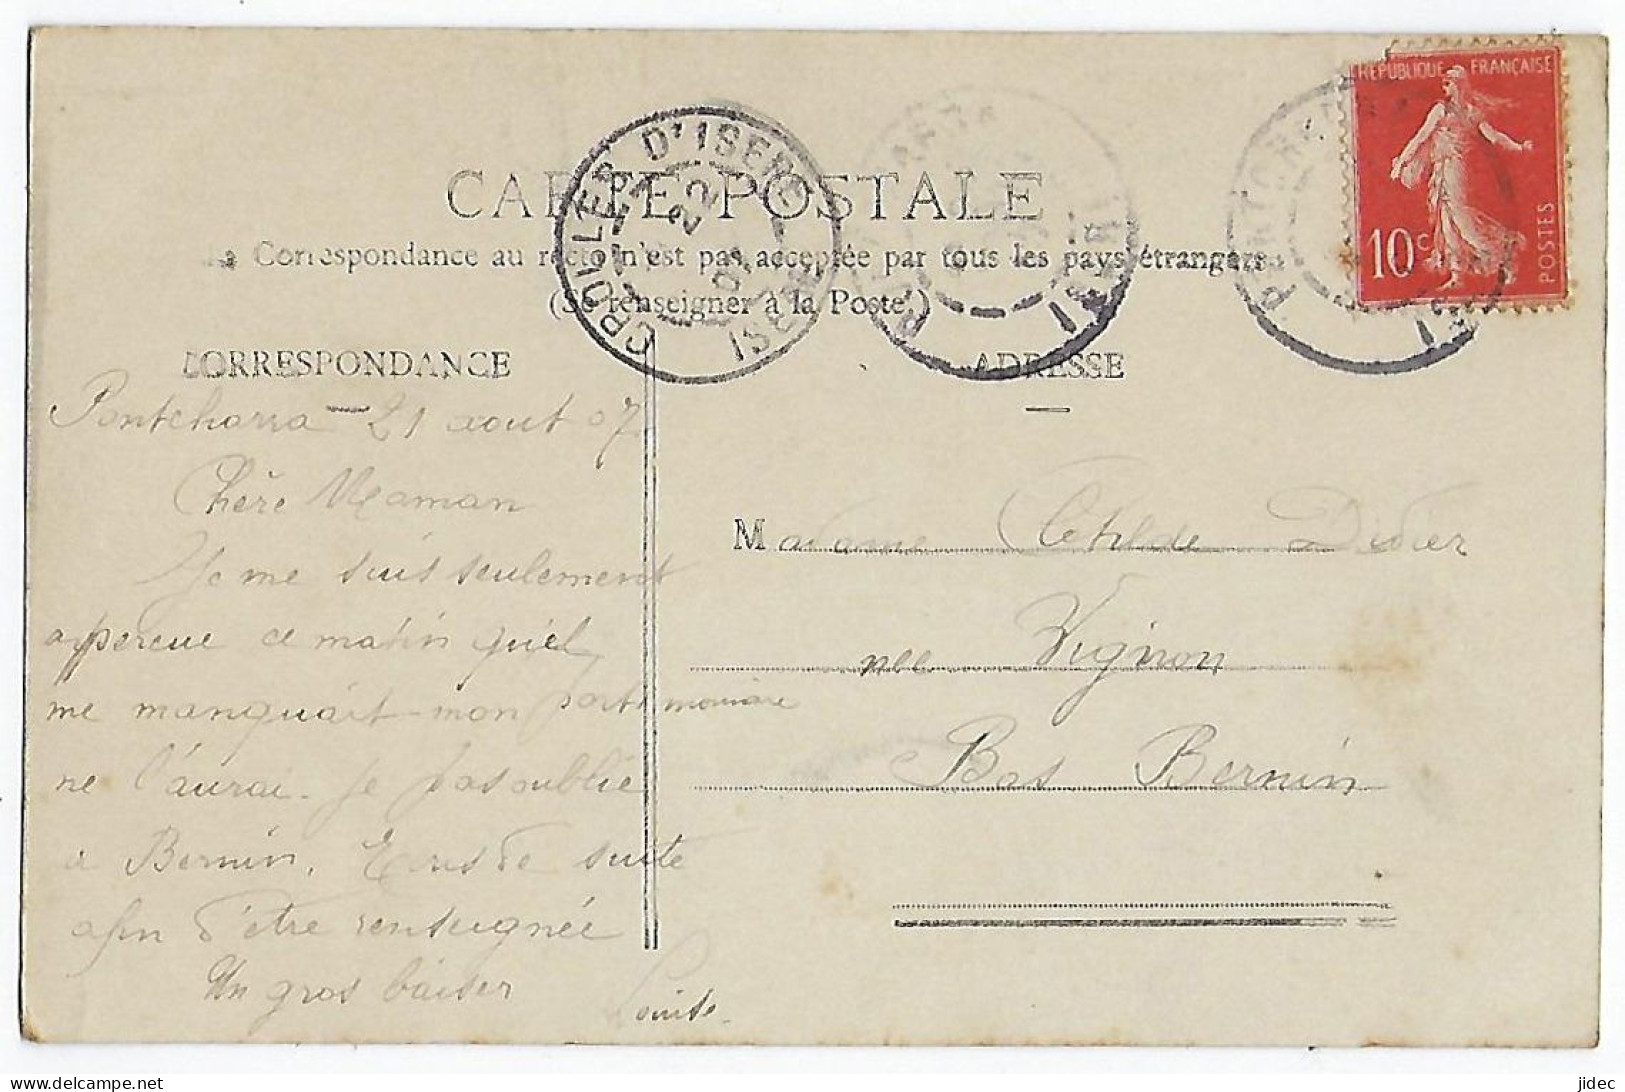 RÉPUBLIQUE FRANÇAISE
10 c
POSTES
CROLLES D'ISERE
22
07
ISERE
CARTE POSTALE
la Correspondance au recto n'est pas acceptée par tous les pays étrangers
(Se renseigner à la Poste.)
CORRESPONDANCE
Pontcharra 21 aout 07
Chère Maman
Je me suis seulement
apperçue ce matin qu'el
me manquait mon portemonaie
ne l'aurai-je pas oublié
a Bernin. Ecris de suite
afin d'être renseignée
Un gros baiser
ADRESSE
Madame Clotilde Didier
nee Vignon
Bas Bernin
jidec